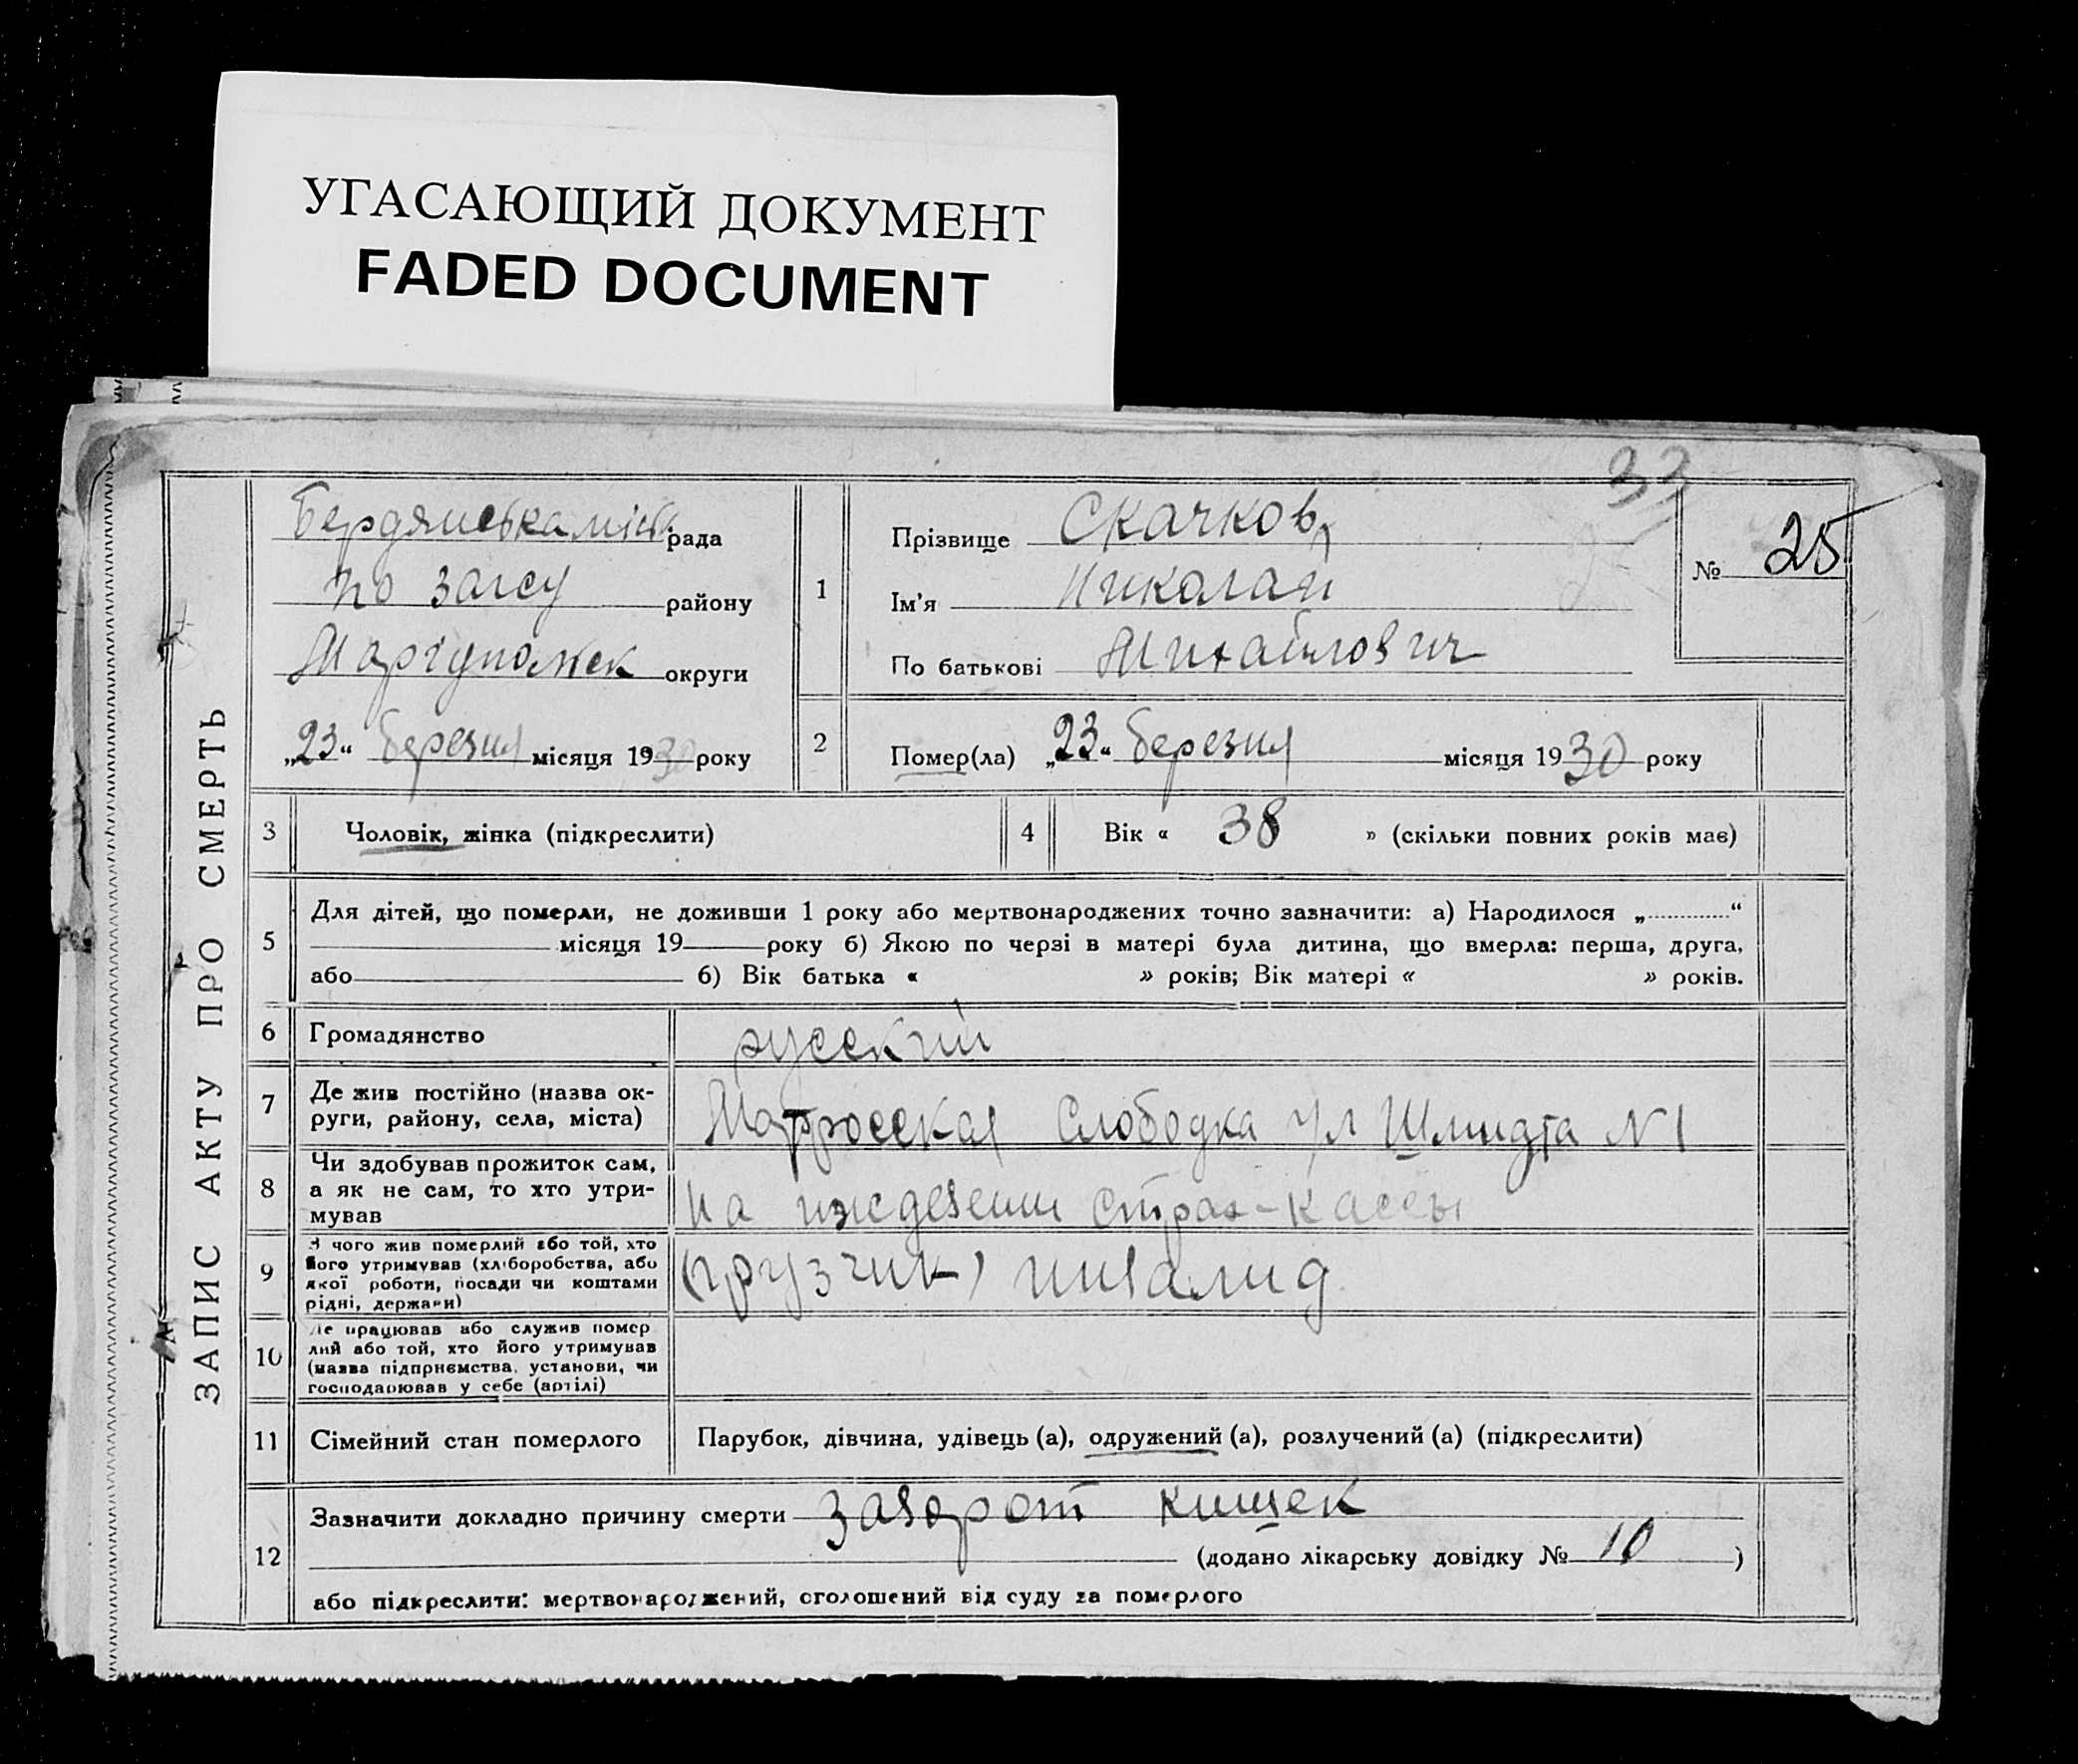 УГАСАЮЩИЙ ДОКУМЕНТ
FADED DOCUMENT
33
ЗАПИС АКТУ ПРО СМЕРТЬ
Бердянська міськ рада
по загсу району
Маріупольск округи
„23“ березня місяця 1930 року
1
Прізвище Скачков
Ім'я Николай
По батькові Михайлович
№ 25
2
Помер(ла) „23“ березня місяця 1930 року
3 Чоловік, жінка (підкреслити)
4 Вік « 38 » (скільки повних років має)
5
Для дітей, що померли, не доживши 1 року або мертвонароджених точно зазначити: а) Народилося „............“
місяця 19 року б) Якою по черзі в матері була дитина, що вмерла: перша, друга,
або б) Вік батька « » років; Вік матері « » років.
6 Громадянство русский
7 Де жив постійно (назва ок-
руги, району, села, міста) Матросская Слободка ул Шмидта N 1
8 Чи здобував прожиток сам,
а як не сам, то хто утри-
мував на иждевении страх-кассы
9 З чого жив померлий або той, хто
його утримував (хліборобства, або
якої роботи, посади чи коштами
рідні, держави) (грузчик) инвалид
10 Де працював або служив помер
лий або той, хто його утримував
(назва підприємства, установи, чи
господарював у себе (артілі)
11 Сімейний стан померлого Парубок, дівчина, удівець (а), одружений (а), розлучений (а) (підкреслити)
12
Зазначити докладно причину смерти заворот кишек
(додано лікарську довідку № 10 )
або підкреслити: мертвонароджений, оголошений від суду за померлого